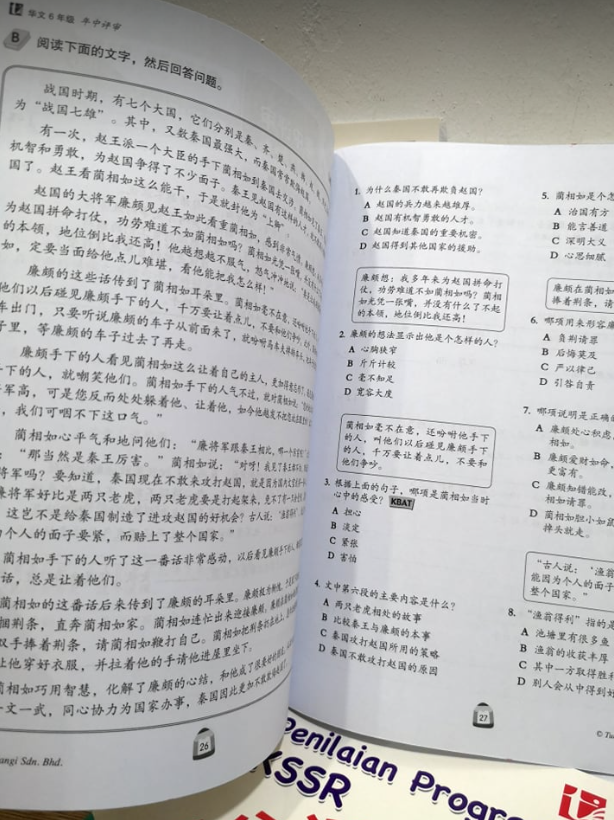 华文6年级 年中评审
B 阅读下面的文字，然后回答问题。
战国时期，有七个大国，它们分别是秦、齐、楚、
为“战国七雄”。其中，又数秦国最强大，而秦国常常欺侮
有一次，赵王派一个大臣的手下蔺相如到秦国去交涉，蔺相如
机智和勇敢，为赵国争得了不少面子。秦王见赵国有这样的人才，
国了。赵王看蔺相如这么能干，于是就封他为“上卿”。
赵国的大将军廉颇见赵王如此看重蔺相如，感到非常气愤
为赵国拼命打仗，功劳难道不如蔺相如吗？蔺相如光凭一张嘴，
的本领，地位倒比我还高！他越想越不服气，怒气冲冲地说：
如，定要当面给他点儿难堪，看他能把我怎么样！”
廉颇的这些话传到了蔺相如耳朵里。蔺相如毫不在意，还吩咐他
他们以后碰见廉颇手下的人，千万要让着点儿，不要和他们争吵。
车出门，只要听说廉颇的车子从前面来了，就吩咐马车夫
子里，等廉颇的车子过去了再走。
廉颇手下的人看见蔺相如这么让着自己的主人，更加得意
手下的人，就嘲笑他们。蔺相如手下的人气不过，就对蔺相如说：
将军高，可是您反而处处躲着他、让着他，
，我们可咽不下这口气。”
蔺相如心平气和地问他们：“廉将军跟秦王相比，哪一个
：“那当然是秦王厉害。”蔺相如说：“对呀！我见了秦王都不
将军吗？要知道，秦国现在不敢来攻打赵国，就是因为国内
廉将军好比是两只老虎，两只老虎要是打起架来，
这岂不是给秦国制造了进攻赵国的好机会？古人说：‘渔翁得利’，
为个人的面子要紧，而赔上了整个国家。”
蔺相如手下的人听了这一番话非常感动，以后看见廉颇手下的人，
话，总是让着他们。
蔺相如的这番话后来传到了廉颇的耳朵里。廉颇极为惭愧，
捆荆条，直奔蔺相如家。蔺相如连忙出来迎接廉颇，
双手捧着荆条，请蔺相如鞭打自己。蔺相如把荆条扔在地上，
让他穿好衣服，并拉着他的手请他进屋里坐下。
蔺相如巧用智慧，化解了廉颇的心结，和他成了很要好的朋友。
一文一武，同心协力为国家办事，秦国因此更加不敢欺侮赵国了。
26
angi Sdn. Bhd.
1. 为什么秦国不敢再欺负赵国？
A 赵国的兵力越来越雄厚。
B 赵国有机智勇敢的人才。
C 赵国知道秦国的重要机密。
D 赵国得到其他国家的援助。
廉颇想：我多年来为赵国拼命打
仗，功劳难道不如蔺相如吗？蔺相
如光凭一张嘴，并没有什么了不起
的本领，地位倒比我还高！
2. 廉颇的想法显示出他是个怎样的人？
A 心胸狭窄
B 斤斤计较
C 毫不知足
D 宽容大度
蔺相如毫不在意，还吩咐他手下
的人，叫他们以后碰见廉颇手下
的人，千万要让着点儿，不要和
他们争吵。
3. 根据上面的句子，哪项是蔺相如当时
心中的感受？ KBAT
A 担心
B 淡定
C 紧张
D 害怕
4. 文中第六段的主要内容是什么？
A 两只老虎相处的故事
B 比较秦王与廉颇的本事
C 秦国攻打赵国所用的策略
D 秦国不敢攻打赵国的原因
27
5. 蔺相如是个怎
A 治国有方
B 能言善道
C 深明大义
D 心思细腻
廉颇在蔺相如
捧着荆条，请
6. 哪项用来形容廉
A 负荆请罪
B 后悔莫及
C 严以律己
D 引咎自责
7. 哪项说明是正确的
A 廉颇处心积虑
相如。
B 廉颇爱财如命，
更富有。
C 廉颇知错能改，
相如请罪。
D 蔺相如胆小如鼠
掉头就走。
“古人说：‘渔翁
能因为个人的面子
整个国家。”
8. “渔翁得利”指的是
A 池塘里有很多鱼
B 渔翁的收获丰厚
C 其中一方取得胜利
D 别人会从中得到好
© Tu
Penilaian Progra
KSSR